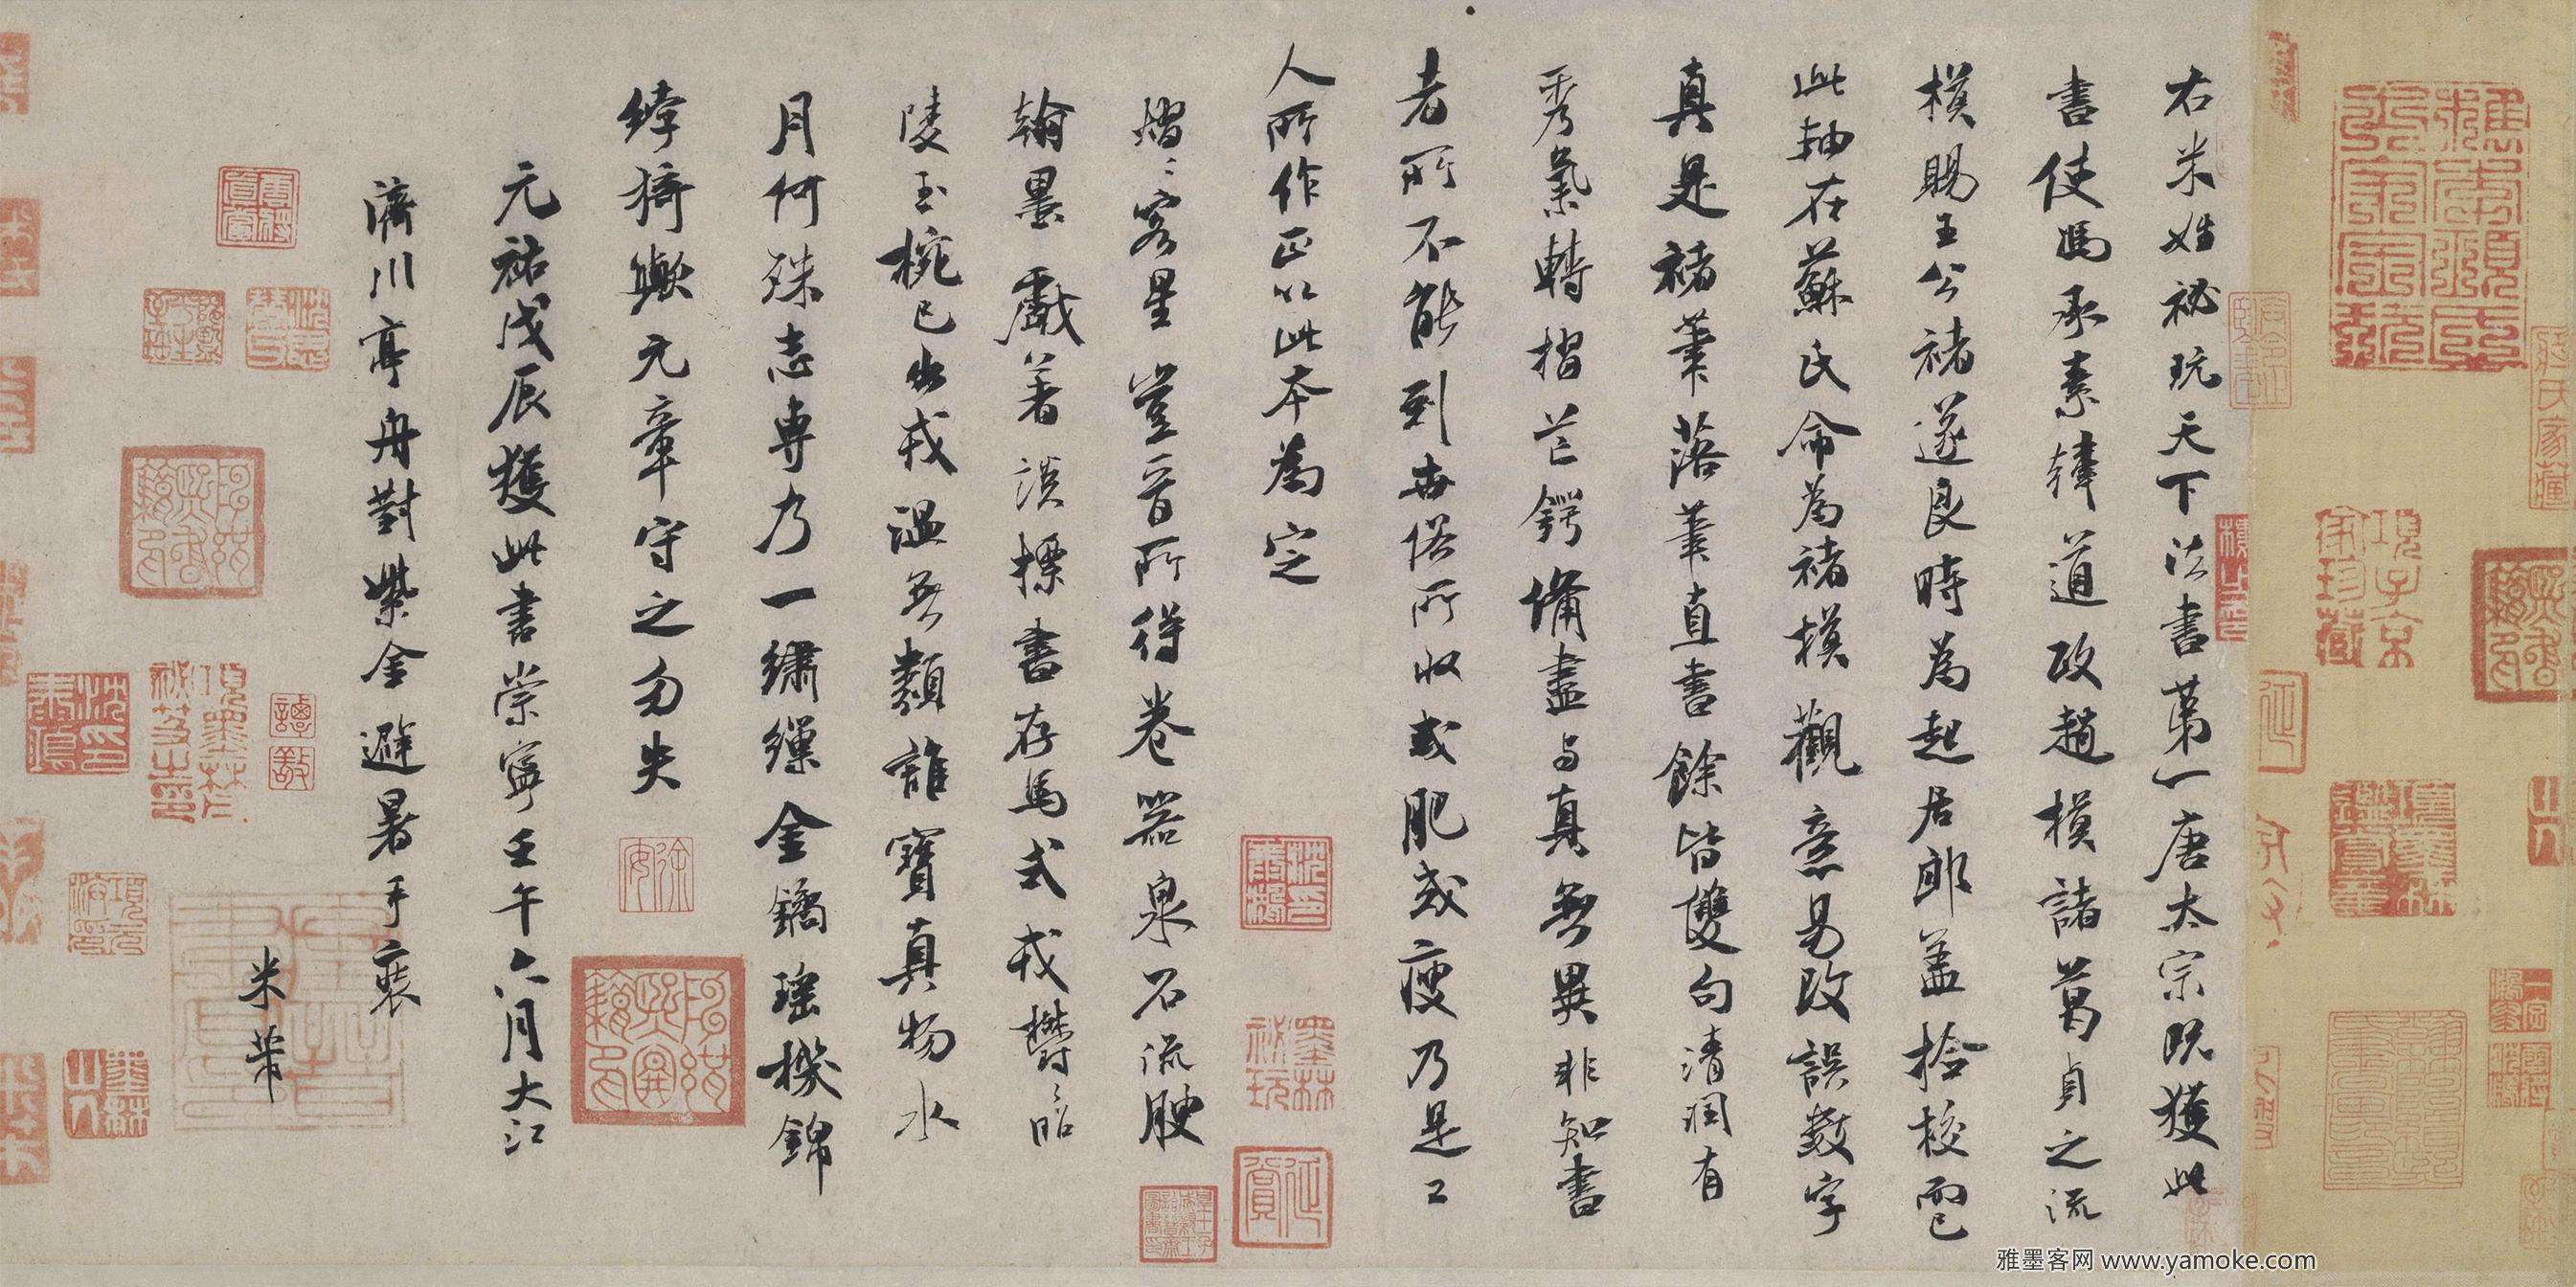 右米姓祕玩天下法書第一唐太宗既獲此
書使馮承素韓道政趙模諸葛貞之流
模賜王公褚遂良時為起居郎盖撿校而已
此軸在蘇氏命為褚模觀意易改誤數字
真是褚筆落筆直書餘皆雙句清潤有
秀氣轉摺芒鍔備盡與真無異非知書
者所不能到世俗所收或肥或瘦乃是工
人所作正以此本為定
熠〻客星豈晉所得卷器泉石流腴
翰墨戲著談摽書存馬式戎欝〻昭
陵玉椀已出戎溫無類誰寶真物水
月何殊志專乃一繡繅金鐍瑤機錦
綍猗歟元章守之勿失
元祐戊辰獲此書崇寧壬午六月大江
濟川亭舟對紫金避暑手裝
米芾
項子京家珍藏
蔣氏家藏
墨林秘玩
雅墨客网 www.yamoke.com